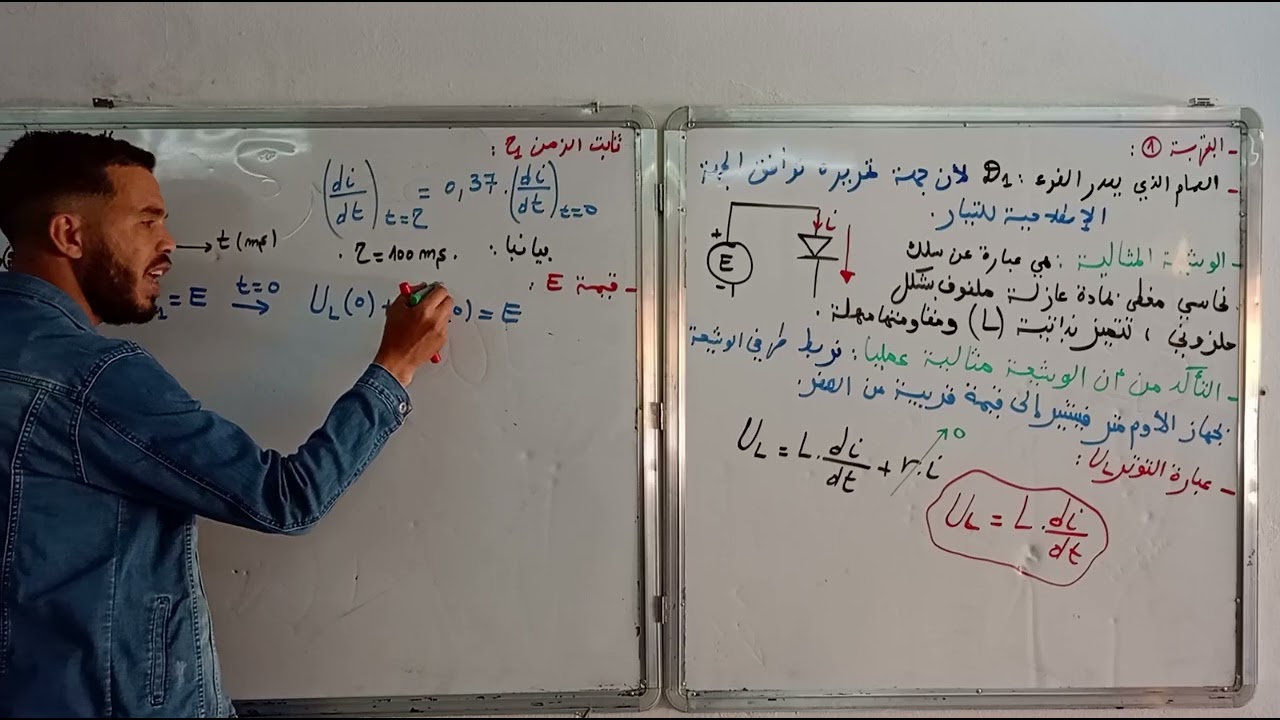 - التجربة ①:
- الصمام الذي يصدر الضوء: D₁ لأن جهة تمريره توافق الجهة
الإصطلاحية للتيار.
i
+
E
-
- الوشيعة المثالية: هي عبارة عن سلك
نحاسي مغطى بمادة عازلة ملفوف بشكل
حلزوني، تتميز بذاتية (L) ومقاومتها مهملة.
- التأكد من أن الوشيعة مثالية عمليا: نربط طرفي الوشيعة
بجهاز الأوم متر فيشير إلى قيمة قريبة من الصفر.
- عبارة التوتر U_L:
U_L = L.di/dt + r.i → 0
U_L = L.di/dt
ثابت الزمن τ₁:
(di/dt)t=τ = 0,37.(di/dt)t=0
بيانيا: τ = 100 ms.
t (ms)
- قيمة E:
= E t=0 → U_L(0) + 0) = E